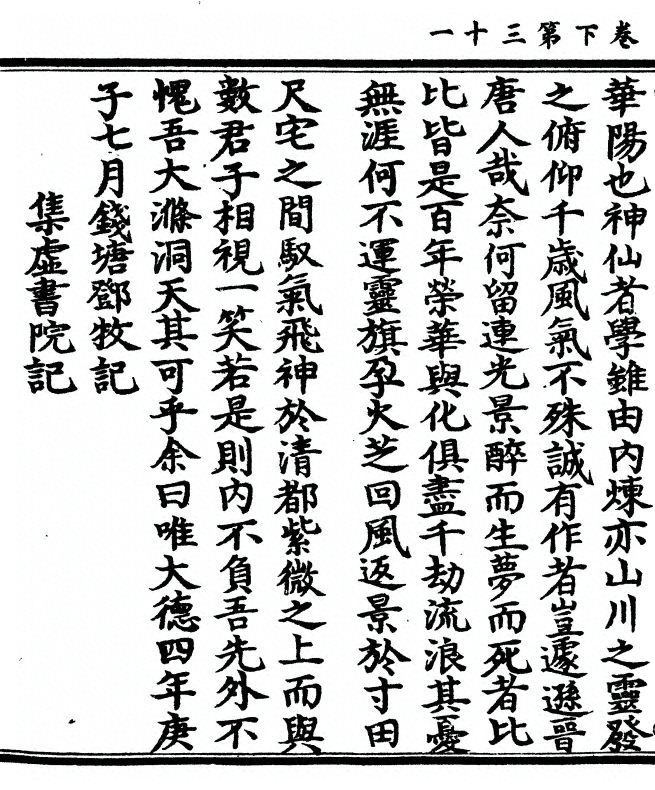 卷下第三十一
華陽也神仙者學雖由内煉亦山川之靈發
之俯仰千歲風氣不殊誠有作者豈遽遜晉
唐人哉柰何留連光景醉而生夢而死者比
比皆是百年榮華與化俱盡千劫流浪其憂
無涯何不運靈旗孕火芝回風返景於寸田
尺宅之間馭氣飛神於清都紫微之上而與
數君子相視一笑若是則内不負吾先外不
愧吾大滌洞天其可乎余曰唯大德四年庚
子七月錢塘鄧牧記
集虛書院記